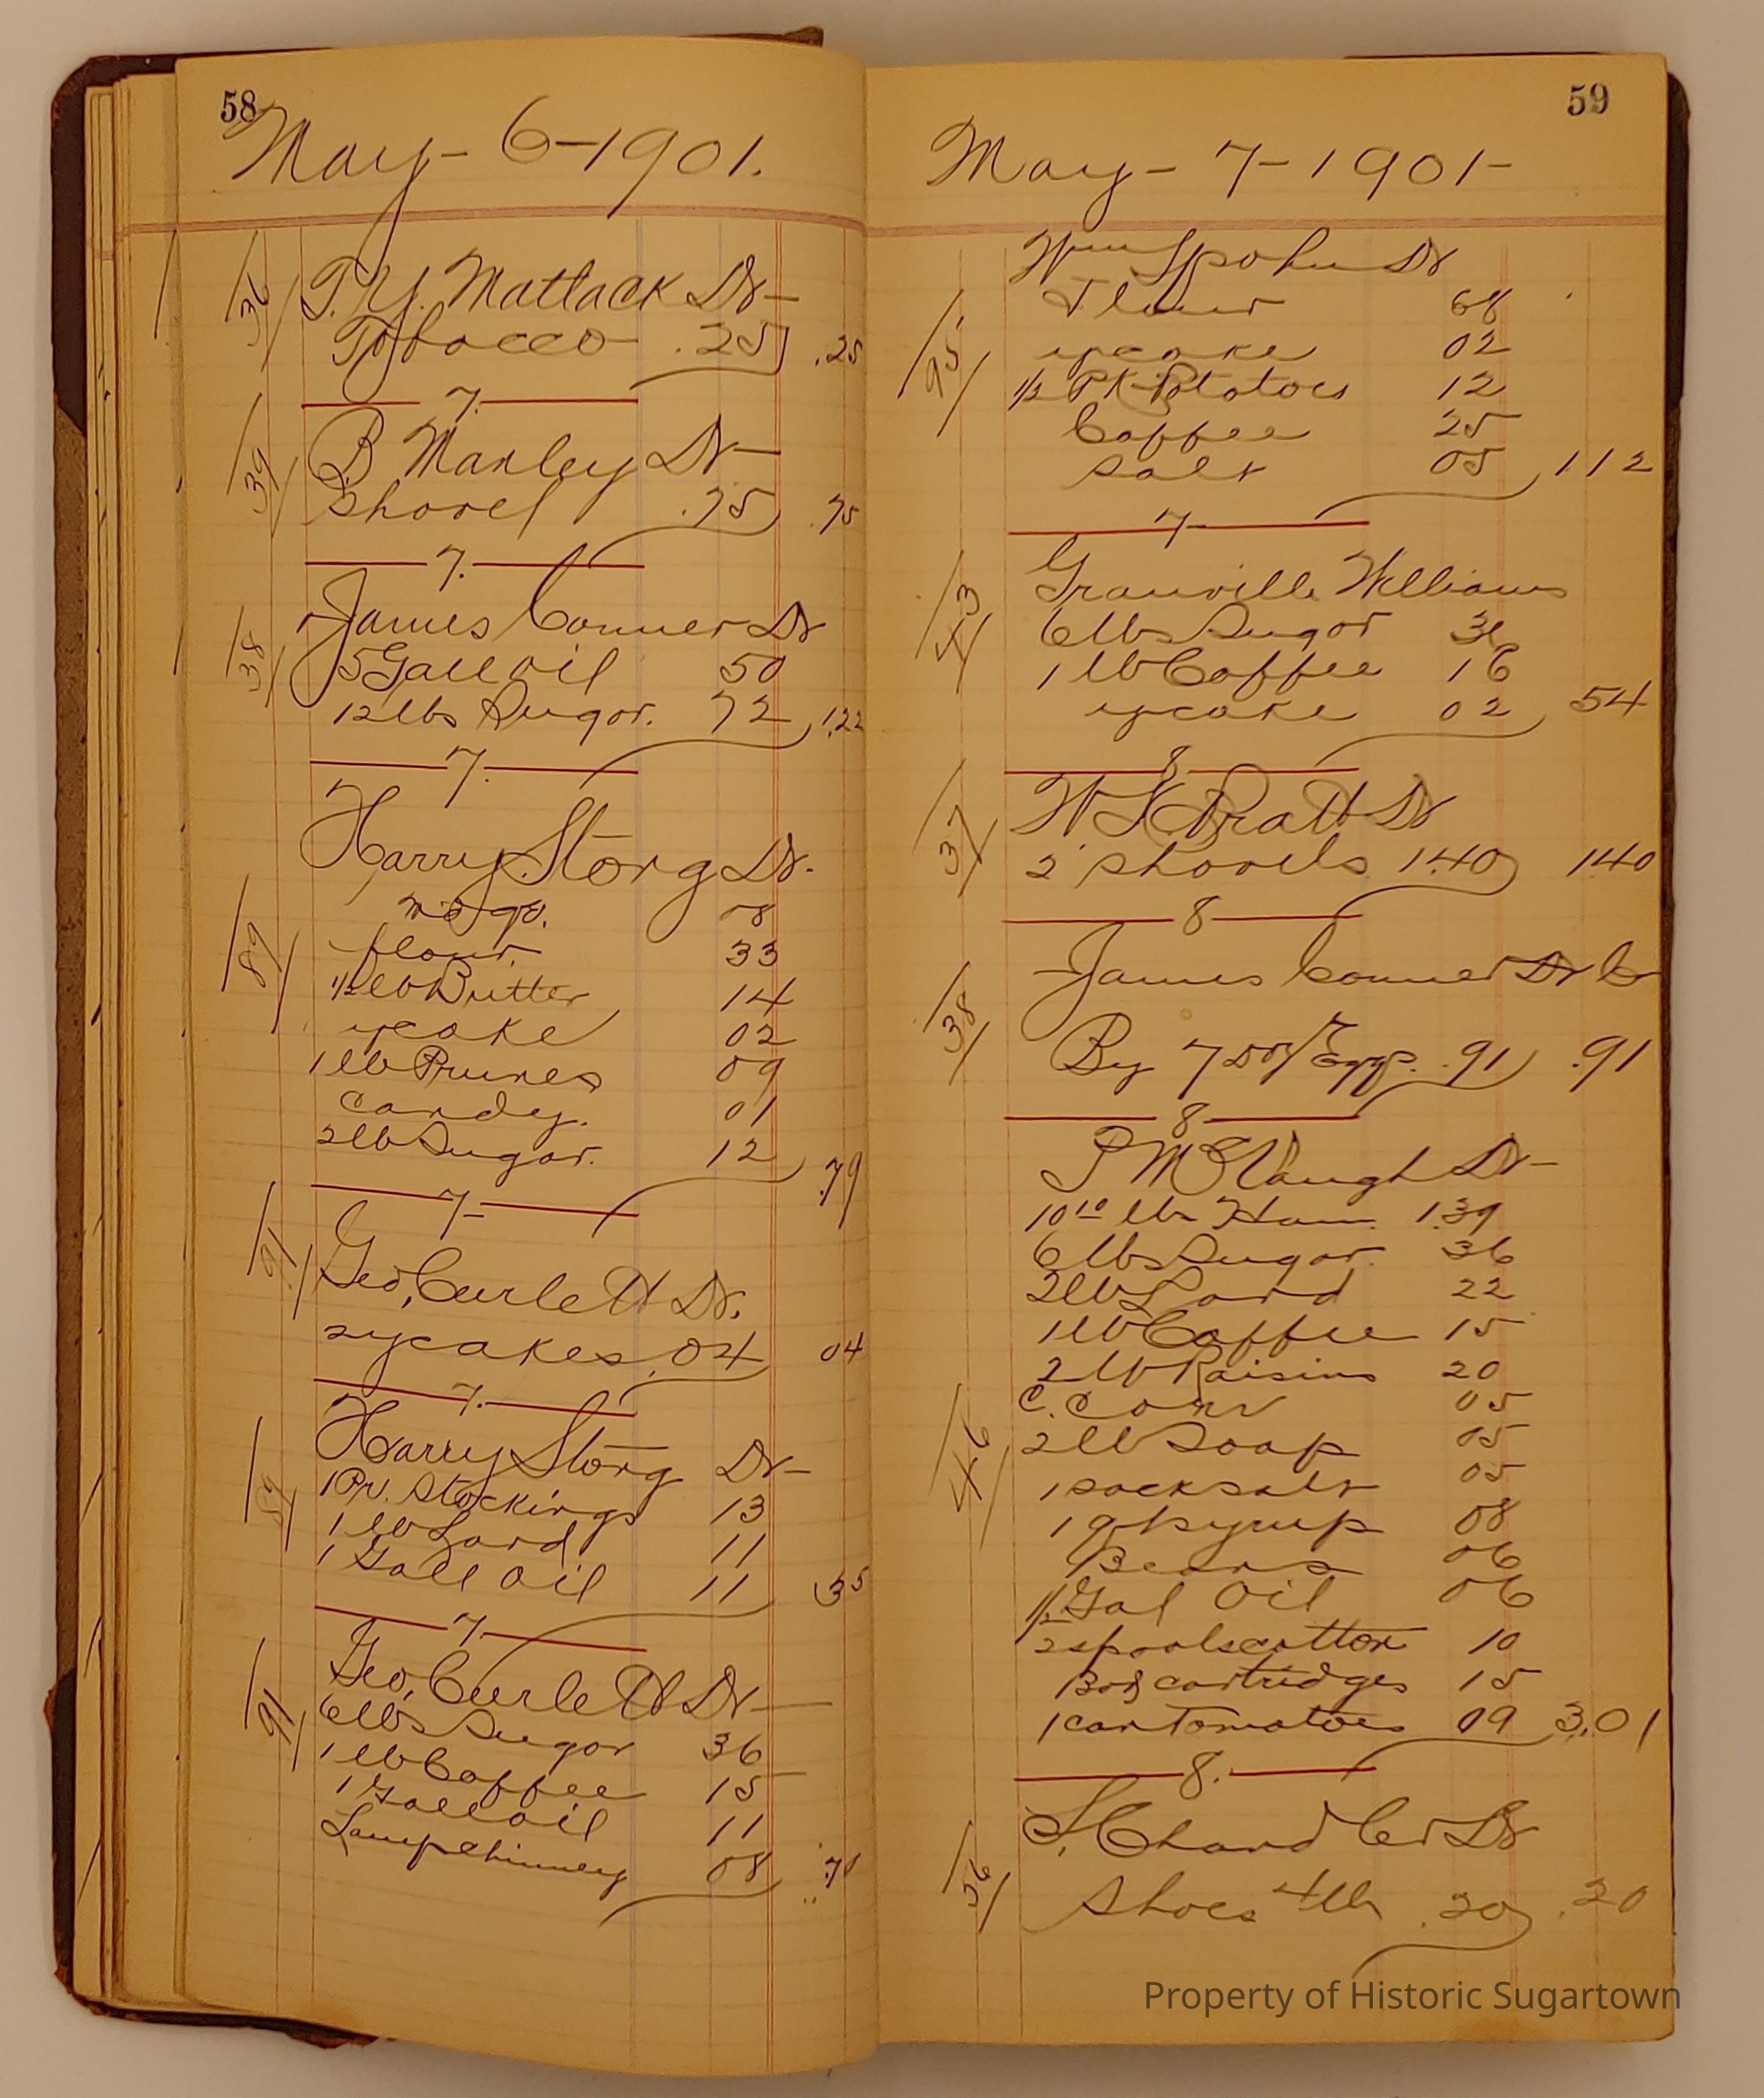 58
May - 6 - 1901.
36
T. Y. Mattack Dr -
Tobacco .25 .25
7.
39
B Manley Dr -
Shovel .75 .75
7.
38
James Conner Dr
5 Gall oil 50
12 lbs Sugar. 72 1.22
7.
Harry Storg Dr.
08
89
flour. 33
1/2 lb Butter 14
ycake 02
1 lb Prunes 09
Candy. 01
2 lb Sugar. 12 .79
7 -
91
Geo. Curlett Dr.
2 ycakes .04 04
7.
Harry Storg Dr -
89
1 Pr. Stockings 13
1 lb Lard 11
1 Gall oil 11 35
7.
Geo. Curlett Dr -
91
6 lbs Sugar 36
1 lb Coffee 15
1 Gall oil 11
Lamp chimney 08 .70
59
May - 7 - 1901 -
Wm Spohn Dr
Flour 68
95
ycake 02
1/2 PK Potatoes 12
Coffee 25
Salt 05 112
7 -
53
Granville Williams
6 lbs Sugar 36
1 lb Coffee 16
ycake 02 54
8
37
Pratt Dr
2 shovels 1.40 140
8
James Conner Dr Cr
38
By 7 Doz Eggs. .91 .91
8
Dr -
10 10 lbs Ham. 1.39
6 lbs Sugar. 36
2 lb Lard 22
1 lb Coffee 15
2 lb Raisins 20
C. Corn 05
46
2 lb Soap 05
1 sack salt 05
1 qt syrup 08
Beans 06
1/2 Gal Oil 06
2 spools cotton 10
Box cartridges 15
1 can Tomatoes 09 3.01
8.
S. Chandler Dr
36
Shoes 4 lb .20 .20
Property of Historic Sugartown